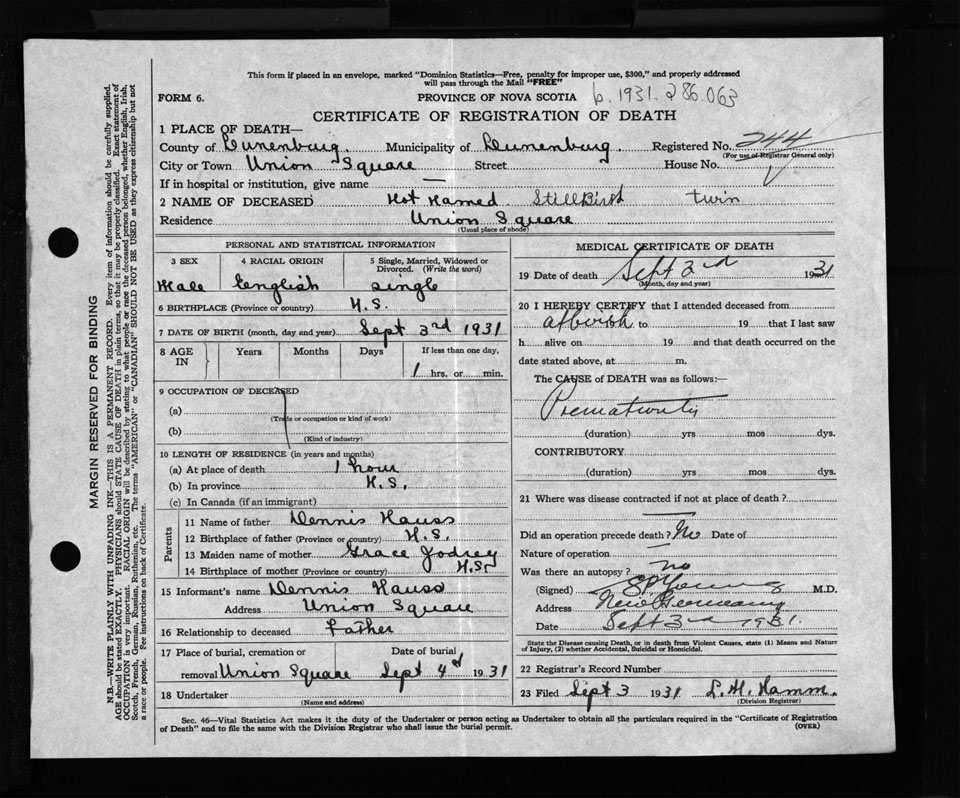 This form if placed in an envelope, marked "Dominion Statistics—Free, penalty for improper use, $300," and properly addressed
will pass through the Mail "FREE"
FORM 6. PROVINCE OF NOVA SCOTIA b. 1931. 286.063
CERTIFICATE OF REGISTRATION OF DEATH
1 PLACE OF DEATH—
County of Lunenburg. Municipality of Lunenburg. Registered No. 244
(For use of Registrar General only)
City or Town Union Square Street House No.
If in hospital or institution, give name —
2 NAME OF DECEASED Not Named StillBirth twin
Residence Union Square
(Usual place of abode)
PERSONAL AND STATISTICAL INFORMATION
3 SEX 4 RACIAL ORIGIN 5 Single, Married, Widowed or
Divorced. (Write the word)
Male English single
6 BIRTHPLACE (Province or country) N.S.
7 DATE OF BIRTH (month, day and year) Sept 3rd 1931
8 AGE IN Years Months Days If less than one day,
1 hrs. or min.
9 OCCUPATION OF DECEASED
(a)
(Trade or occupation or kind of work)
(b)
(Kind of industry)
10 LENGTH OF RESIDENCE (in years and months)
(a) At place of death 1 hour
(b) In province N.S.
(c) In Canada (if an immigrant)
Parents
11 Name of father Dennis Hauss
12 Birthplace of father (Province or country) N.S.
13 Maiden name of mother Grace Jodrey
14 Birthplace of mother (Province or country) N.S.
15 Informant's name Dennis Hauss
Address Union Square
16 Relationship to deceased Father
17 Place of burial, cremation or Date of burial
removal Union Square Sept 4th 1931
18 Undertaker
(Name and address)
MEDICAL CERTIFICATE OF DEATH
19 Date of death Sept 3rd 1931
(Month, day and year)
20 I HEREBY CERTIFY that I attended deceased from
at birth to 19 that I last saw
h alive on 19 and that death occurred on the
date stated above, at m.
The CAUSE of DEATH was as follows:—
Prematurity
(duration) yrs mos dys.
CONTRIBUTORY
(duration) yrs mos dys.
21 Where was disease contracted if not at place of death?
—
Did an operation precede death? No Date of
Nature of operation —
Was there an autopsy? No
(Signed) Young M.D.
Address New Germany
Date Sept 3rd 1931.
State the Disease causing Death, or in death from Violent Causes, state (1) Means and Nature
of Injury, (2) whether Accidental, Suicidal or Homicidal.
22 Registrar's Record Number
23 Filed Sept 3 1931 L. H. Hamm.
(Division Registrar)
Sec. 46—Vital Statistics Act makes it the duty of the Undertaker or person acting as Undertaker to obtain all the particulars required in the "Certificate of Registration
of Death" and to file the same with the Division Registrar who shall issue the burial permit. (OVER)
MARGIN RESERVED FOR BINDING
N.B.—WRITE PLAINLY WITH UNFADING INK—THIS IS A PERMANENT RECORD. Every item of information should be carefully supplied.
AGE should be stated EXACTLY. PHYSICIANS should STATE CAUSE OF DEATH in plain terms, so that it may be properly classified. Exact statement of
OCCUPATION is very important. RACIAL ORIGIN will be described by stating to what people or race the deceased person belonged, whether English, Irish,
Scotch, French, German, Russian, Ruthenian, etc. The terms "AMERICAN" or "CANADIAN" SHOULD NOT BE USED as they express citizenship but not
a race or people. See instructions on back of Certificate.